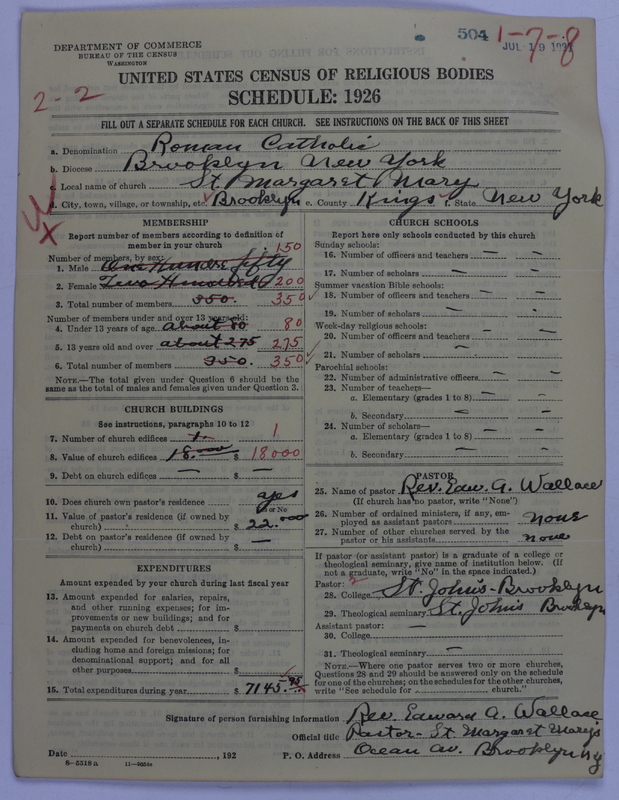 DEPARTMENT OF COMMERCE
BUREAU OF THE CENSUS
WASHINGTON
504 1-7-8
JUL 19
UNITED STATES CENSUS OF RELIGIOUS BODIES
SCHEDULE: 1926
2-2
FILL OUT A SEPARATE SCHEDULE FOR EACH CHURCH. SEE INSTRUCTIONS ON THE BACK OF THIS SHEET
a. Denomination Roman Catholic
b. Diocese Brooklyn New York
c. Local name of church St. Margaret Mary
d. City, town, village, or township, etc. Brooklyn e. County Kings f. State New York
MEMBERSHIP
Report number of members according to definition of
member in your church
Number of members, by sex:
1. Male One Hundre fifty 150
2. Female Two Hundred 200
3. Total number of members 350. 350
Number of members under and over 13 years old:
4. Under 13 years of age about 80 80
5. 13 years old and over about 275 275
6. Total number of members 350. 350
NOTE.—The total given under Question 6 should be the
same as the total of males and females given under Question 3.
CHURCH BUILDINGS
See instructions, paragraphs 10 to 12
7. Number of church edifices 1 1
8. Value of church edifices 18.000 $ 18000
9. Debt on church edifices — $ —
10. Does church own pastor's residence yes
Yes or No
11. Value of pastor's residence (if owned by
church) $ 22.000
12. Debt on pastor's residence (if owned by
church) $ —
EXPENDITURES
Amount expended by your church during last fiscal year
13. Amount expended for salaries, repairs,
and other running expenses; for im-
provements or new buildings; and for
payments on church debt $
14. Amount expended for benevolences, in-
cluding home and foreign missions; for
denominational support; and for all
other purposes $
15. Total expenditures during year $ 7145.95
CHURCH SCHOOLS
Report here only schools conducted by this church
Sunday schools:
16. Number of officers and teachers — —
17. Number of scholars — —
Summer vacation Bible schools:
18. Number of officers and teachers — —
19. Number of scholars — —
Week-day religious schools:
20. Number of officers and teachers — —
21. Number of scholars —
Parochial schools:
22. Number of administrative officers — —
23. Number of teachers—
a. Elementary (grades 1 to 8) — —
b. Secondary — —
24. Number of scholars—
a. Elementary (grades 1 to 8) — —
b. Secondary — —
PASTOR
25. Name of pastor Rev. Edw. A. Wallace
(If church has no pastor, write "None")
26. Number of ordained ministers, if any, em-
ployed as assistant pastors None
27. Number of other churches served by the
pastor or his assistants none
If pastor (or assistant pastor) is a graduate of a college or
theological seminary, give name of institution below. (If
not a graduate, write "No" in the space indicated.)
Pastor: 2
28. College St. John's - Brooklyn
29. Theological seminary St. John's Brooklyn
Assistant pastor: —
30. College
31. Theological seminary —
NOTE.—Where one pastor serves two or more churches,
Questions 28 and 29 should be answered only on the schedule
for one of the churches; on the schedules for the other churches,
write "See schedule for church."
Signature of person furnishing information Rev. Edward A. Wallace
Official title Pastor - St. Margaret Mary's
Date , 192 P. O. Address Ocean Av. Brooklyn NY
8-5318a 11-9554a